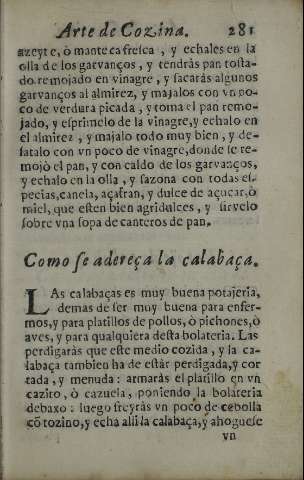 Arte de Cozina. 281
azeyte, ò manteca fresca, y echales en la
olla de los garvanços, y tendràs pan tosta-
do, remojado en vinagre, y sacaràs algunos
garvanços al almirez, y majalos con vn po-
co de verdura picada, y toma el pan remo-
jado, y esprimelo de la vinagre, y echalo en
el almirez, y majalo todo muy bien, y de-
satalo con vn poco de vinagre, donde se re-
mojò el pan, y con caldo de los garvanços,
y echalo en la olla, y sazona con todas es-
pecias, canela, açafran, y dulce de açucar, ò
miel, que esten bien agridulces, y sirvelo
sobre vna sopa de canteros de pan.
Como se adereça la calabaça.
LAs calabaças es muy buena potajeria,
demas de ser muy buena para enfer-
mos, y para platillos de pollos, ò pichones, ò
aves, y para qualquiera desta bolateria. Las
perdigaràs que estè medio cozida, y la ca-
labaça tambien ha de estàr perdigada, y cor
tada, y menuda: armaràs el platillo en vn
cazito, ò cazuela, poniendo la bolateria
debaxo: luego freyràs vn poco de cebolla
cõ tozino, y echa alli la calabaça, y ahoguese
vn